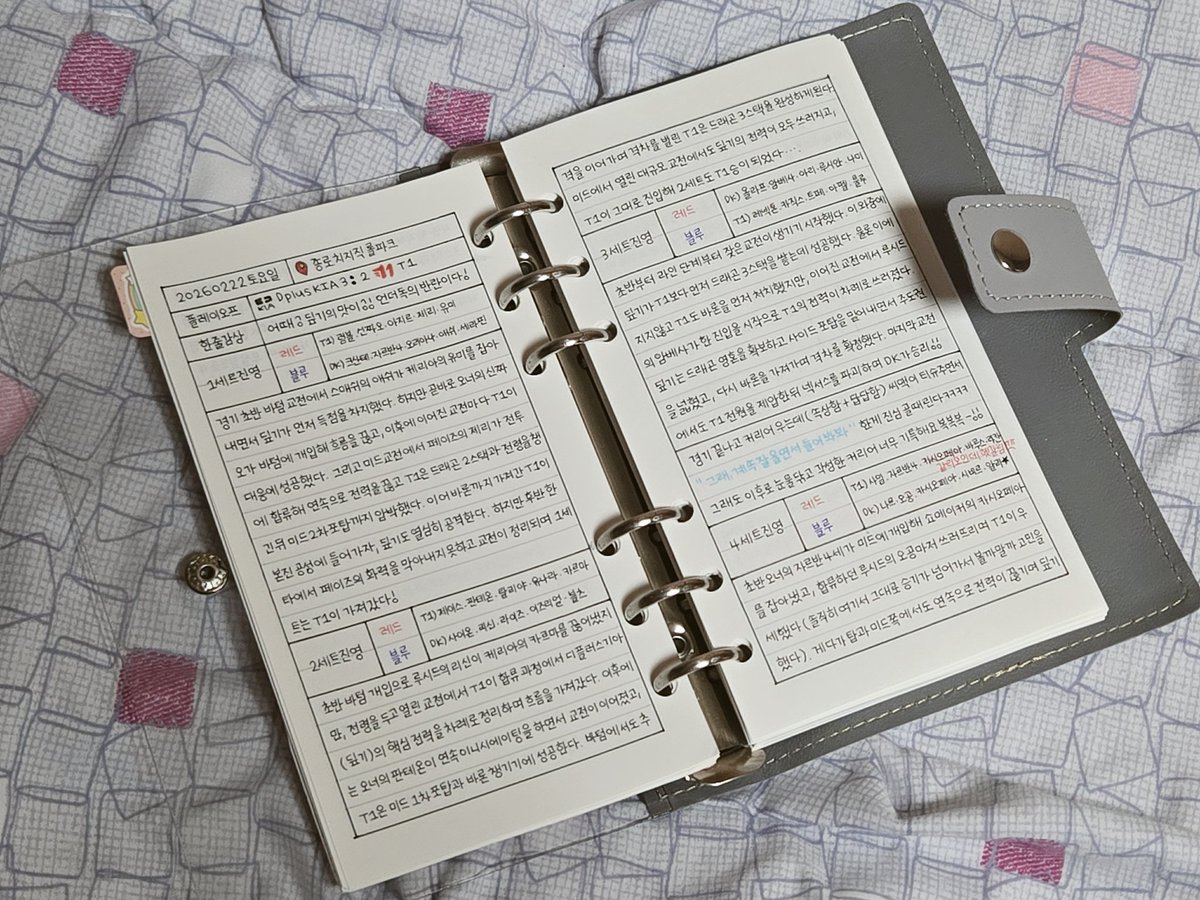 20260222토요일 종로치지직 롤파크
플레이오프 Dplus KIA 3 : 2 T1
한줄감상 어때? 딮기의 맛이!! 언더독의 반란이다!
1세트진영 레드 T1) 럼블.신짜오.아지르.제리.유미
블루 DK) 크산테.자르반4.오리아나.애쉬.세라핀
경기 초반 바텀 교전에서 스매쉬의 애쉬가 케리아의 유미를 잡아
내면서 딮기가 먼저 득점을 차지했다. 하지만 곧바로 오너의 신짜
오가 바텀에 개입해 흐름을 끊고, 이후에 이어진 교전마다 T1이
대응에 성공했다. 그리고 미드교전에서 페이즈의 제리가 전투
에 합류해 연속으로 전력을 끊고 T1은 드래곤 2스택과 전령을 챙
긴뒤 미드2차포탑까지 압박했다. 이어 바론까지 가져간 T1이
본진 공성에 들어가자, 딮기도 열심히 공격한다. 하지만 후반 한
타에서 페이즈의 화력을 막아내지 못하고 교전이 정리되며 1세
트는 T1이 가져갔다!
2세트진영 레드 T1) 제이스.판테온.탈리야.유나라.카르마
블루 DK) 사이온.리신.라이즈.이즈리얼.블츠
초반 바텀 개입으로 루시드의 리신이 케리아의 카르마를 끊어냈지
만, 전령을 두고 열린 교전에서 T1이 합류 과정에서 디플러스기아
(딮기)의 핵심 전력을 차례로 정리하며 흐름을 가져갔다. 이후에
는 오너의 판테온이 연속 이니시에이팅을 하면서 교전이 이어졌고,
T1은 미드 1차 포탑과 바론 챙기기에 성공한다. 바텀에서도 추
격을 이어가며 격차를 벌린 T1은 드래곤 3스택을 완성하게된다
미드에서 열린 대규모 교전에서도 딮기의 전력이 모두 쓰러지고,
T1이 그대로 진입해 2세트도 T1승이 되었다...
3세트진영 레드 DK) 올라프.암베사.아리.루시안.나미
블루 T1) 레넥톤.카직스.트페.아펠.룰루
초반부터 라인 단계부터 잦은교전이 생기기 시작했다. 이와중에
딮기가 T1보다 먼저 드래곤 3스택을 쌓는데 성공했다. 물론 이에
지지않고 T1도 바론을 먼저 처치했지만, 이어진 교전에서 루시드
의 암베사가 한 진입을 시작으로 T1의 전력이 차례로 쓰러졌다.
딮기는 드래곤 영혼을 확보하고 사이드 포탑을 밀어내면서 주도권
을 넓혔고, 다시 바론을 가져가며 격차를 확정했다. 마지막교전
에서도 T1 전원을 제압한뒤 넥서스를 파괴하며 DK가 승리!!
경기 끝나고 커리어 우는데 (속상함+답답함) 씨맥이 티슈주면서
"그래, 계속 잘 울면서 들어봐봐" 한게 진심 골때린다ㅋㅋㅋㅋ
그래도 이후로 눈물닦고 각성한 커리어 너무 기특해요 복복복-!!
4세트진영 레드 T1) 사일.자르반4.카시오페아.바루스.
블루 DK) 나르.오공.카시오페아.시비르.알리★
초반 오너의 자르반4세가 미드에 개입해 쇼메이커의 카시오페아
를 잡아냈고, 합류하던 루시드의 오공마저 쓰러뜨리며 T1이 우
세했다 (솔직히 여기서 그대로 승기가 넘어가서 볼까말까 고민을
했다). 게다가 탑과 미드쪽에서도 연속으로 전력이 끊기며 딮기